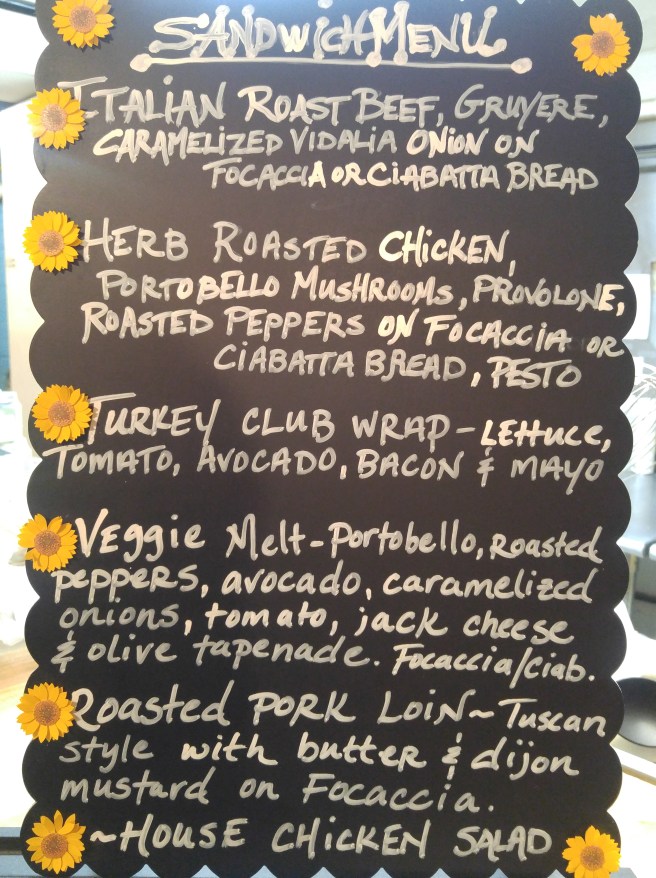 SANDWICH MENU
ITALIAN ROAST BEEF, GRUYERE,
CARAMELIZED VIDALIA ONION ON
FOCACCIA OR CIABATTA BREAD
HERB ROASTED CHICKEN,
PORTOBELLO MUSHROOMS, PROVOLONE,
ROASTED PEPPERS ON FOCACCIA OR
CIABATTA BREAD, PESTO
TURKEY CLUB WRAP - LETTUCE,
TOMATO, AVOCADO, BACON & MAYO
Veggie Melt - Portobello, Roasted
peppers, avocado, caramelized
onions, tomato, jack cheese
& olive tapenade. Focaccia/Ciab.
Roasted PORK LOIN ~ Tuscan
style with butter & dijon
mustard on Focaccia.
~ HOUSE CHICKEN SALAD